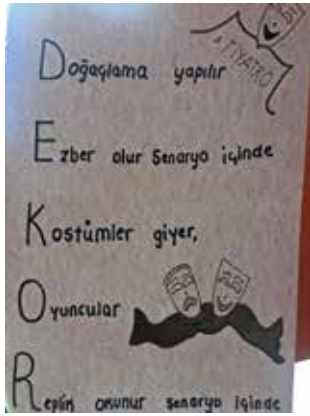 TİYATRO
Doğaçlama yapılır
Ezber olur Senaryo içinde
Kostümler giyer,
Oyuncular
Replik okunur senaryo içinde